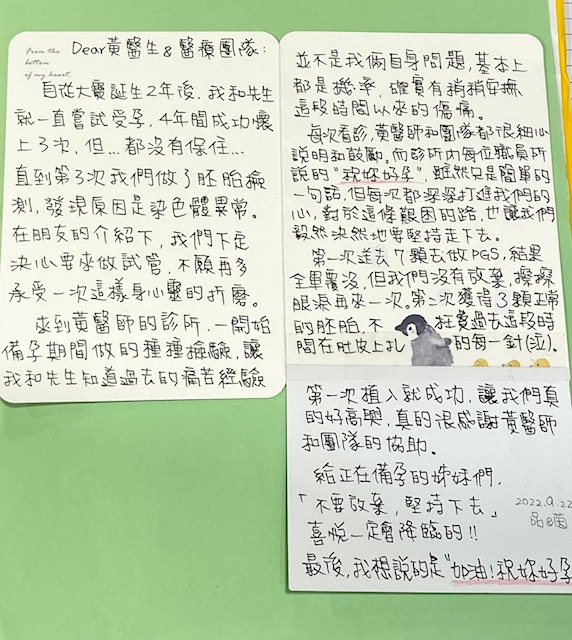 From the
bottom
of my heart.
Dear黃醫生&醫療團隊:
自從大寶誕生2年後,我和先生
就一直嘗試受孕,4年間成功懷
上3次,但...都沒有保住...
直到第3次我們做了胚胎檢
測,發現原因是染色體異常。
在朋友的介紹下,我們下定
決心要來做試管,不願再多
承受一次這樣身心靈的折磨。
來到黃醫師的診所,一開始
備孕期間做的種種檢驗,讓
我和先生知道過去的痛苦經驗
並不是我倆自身問題,基本上
都是機率,確實有稍稍安撫
這段時間以來的傷痛。
每次看診,黃醫師和團隊都很細心
說明和鼓勵。而診所內每位職員所
說的"祝妳好孕",雖然只是簡單的
一句話,但每次都深深打進我們的
心,對於這條艱困的路,也讓我們
毅然決然地要堅持走下去。
第一次送去7顆去做PGS,結果
全軍覆沒,但我們沒有放棄,擦擦
眼淚再來一次。第二次獲得3顆正常
的胚胎,不枉費過去這段時
間在肚皮上扎的每一針(泣).
第一次植入就成功,讓我們真
的好高興,真的很感謝黃醫師
和團隊的協助.
給正在備孕的姊妹們,
「不要放棄,堅持下去」
喜悅一定會降臨的!!
2022.9.22
品&茵
最後,我想說的是"加油!祝妳好孕